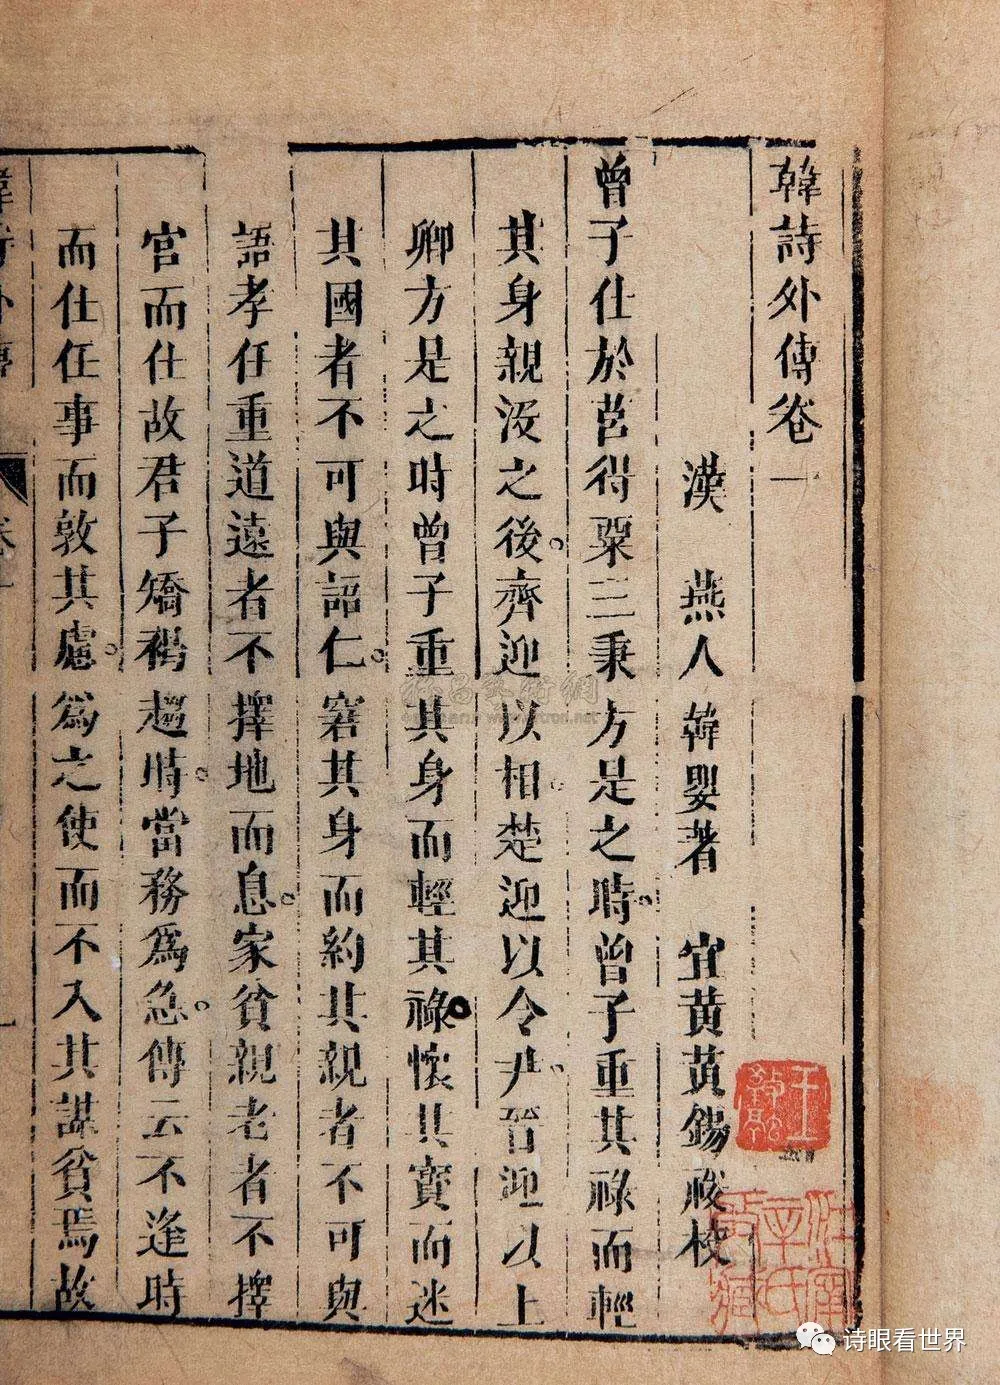 韓詩外傳卷一
漢 燕人韓嬰著 宜黃黃錫祓校
曾子仕於莒得粟三秉方是之時曾子重其祿而輕
其身親沒之後齊迎以相楚迎以令尹晉迎以上
卿方是之時曾子重其身而輕其祿懷其寶而迷
其國者不可與語仁窘其身而約其親者不可與
語孝任重道遠者不擇地而息家貧親老者不擇
官而仕故君子矯褐趨時當務為急傳云不逢時
而仕任事而敦其慮為之使而不入其謀貧焉故
韓詩外傳 卷一
诗眼看世界